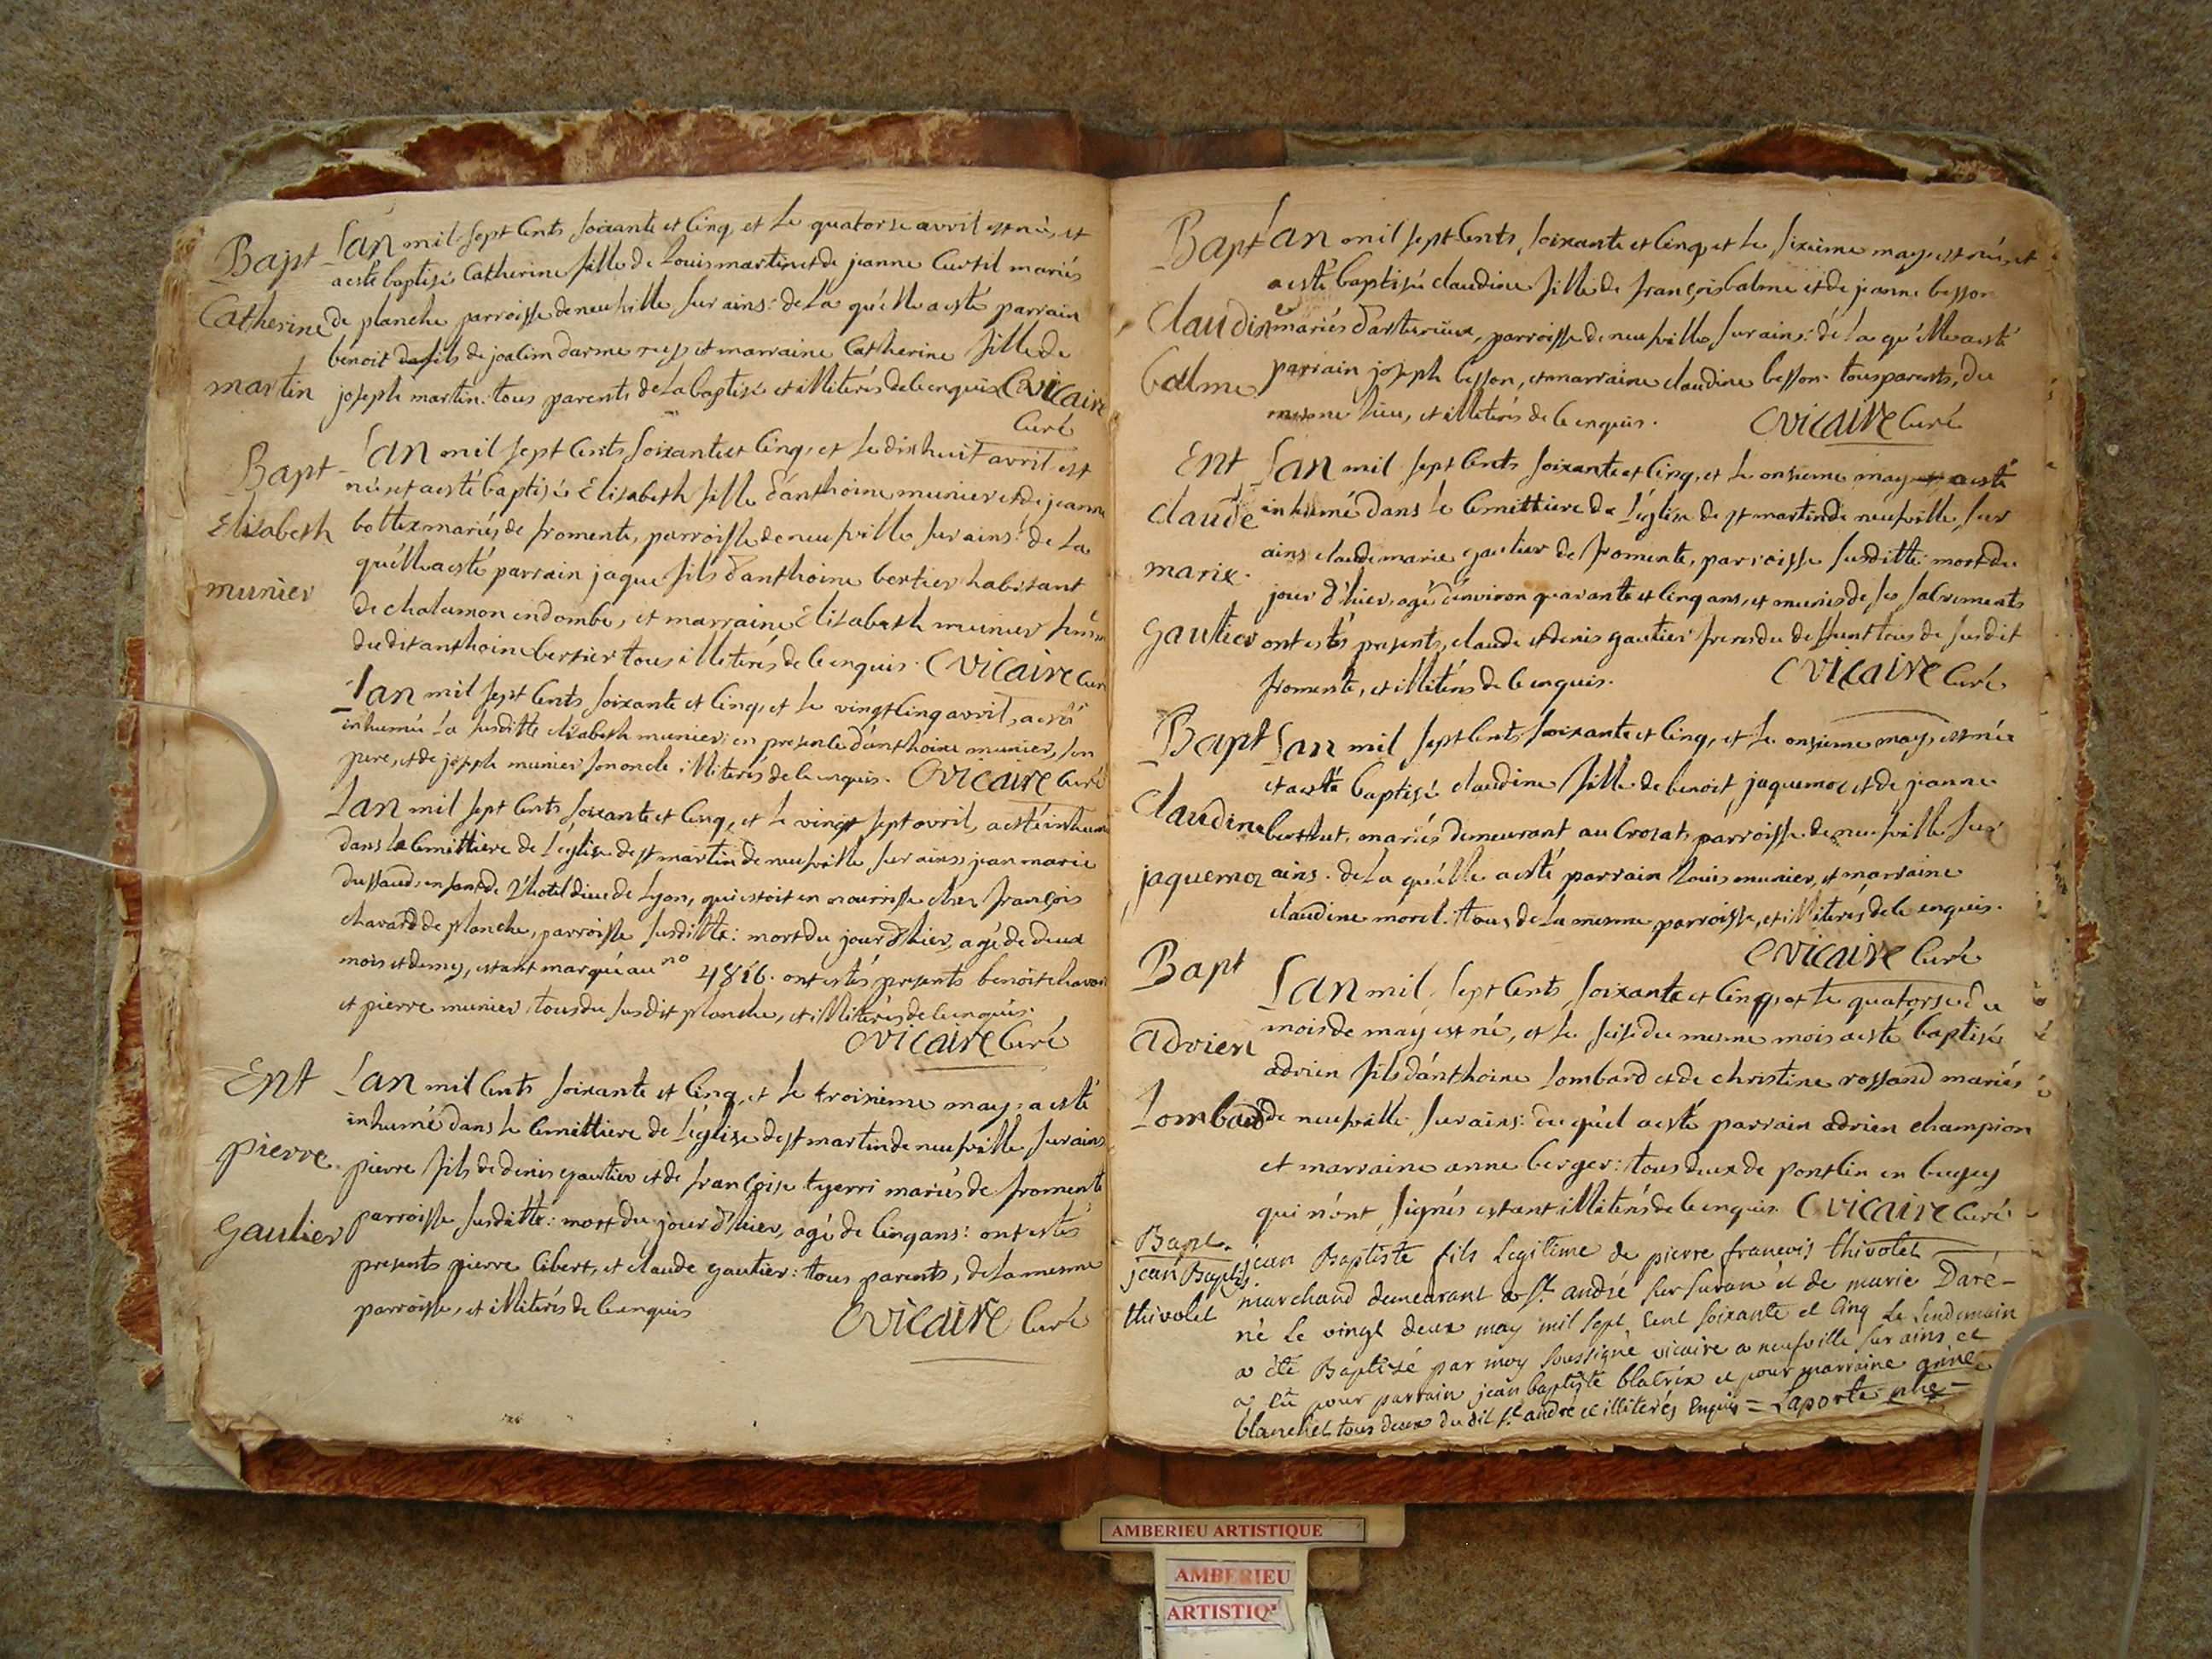 Bapt
Catherine
martin
Lan mil sept Cents soixante et Cinq, et le quatorse avril est née, et
a esté baptisé Catherine fille de Louis martin et de jeanne Curtil mariés
de planche parroisse de neufville sur ains: de la qu'elle a esté parrain
benoit fils de joalim darme et marraine Catherine fille de
joseph martin: tous parents de la baptisé et illiterés de ce enquis Cvicaire
Curé
Bapt
Elisabeth
munier
Lan mil sept Cents soixante et Cinq, et le dix huit avril est
née et a esté baptisée Elisabeth fille d'anthoine munier et de jeanne
bottex mariés de fromente, parroisse de neufville sur ains: de La
qu'elle a esté parrain jaque fils d'anthoine bertier habitant
de chalamon en dombe, et marraine Elisabeth munier
du dit anthoine bertier tous illiterés de ce enquis. Cvicaire Curé
Lan mil sept Cents soixante et Cinq, et le vingt Cinq avril, a esté
inhumée La susditte elisabeth munier: en presence d'anthoine munier, son
pere, et de joseph munier son oncle illiterés de ce enquis. Cvicaire Curé
Lan mil sept Cents soixante et Cinq, et le vingt sept avril, a esté inhumé
dans le Cemittiere de l'église de st martin de neufville sur ains jean marie
dussaud, enfant de l'hotel dieu de Lyon, qui estoit en nourrisse chez françois
chavard de planche, parroisse susditte: mort du jour d'hier, agé de deux
mois et demy, estant marqué au no 4816. ont estés presents benoit chavard
et pierre munier tous du susdit planche, et illiterés de ce enquis.
Cvicaire Curé
Ent
pierre
Gautier
Lan mil Cents soixante et Cinq, et le troisieme may, a esté
inhumé dans le Cemittiere de l'église de st martin de neufville sur ains
pierre fils de denis gautier et de françoise tyerri mariés de fromente
parroisse susditte: mort du jour d'hier, agé de Cinq ans: ont estés
presents pierre Cibert, et claude gautier: tous parents, de la mesme
parroisse, et illiterés de ce enquis Cvicaire Curé
Bapt
Claudine
balme
Lan mil sept Cents soixante et Cinq, et le sixieme may, est née, et
a esté baptisée claudine fille de françois balme et de jeanne besson
mariés d'arturieux, parroisse de neufville sur ains: de la qu'elle a esté
parrain joseph besson, et marraine claudine besson tous parents, du
mesme lieu, et illiterés de ce enquis. Cvicaire Curé
Ent
claude
marie
gautier
Lan mil sept Cents soixante et Cinq, et le onsieme may a esté
inhumé dans le Cemittiere de l'église de st martin de neufville sur
ains claude marie gautier de fromente, parroisse susditte: mort du
jour d'hier, agé d'environ quarante et Cinq ans, et munis de ses sacrements
ont estés presents, claude et denis gautier freres du deffunt tous de susdit
fromente, et illiterés de ce enquis. Cvicaire Curé
Bapt
Claudine
jaquemoz
Lan mil sept Cents soixante et Cinq, et le onsieme may, est née
et a esté baptisé claudine fille de benoit jaquemoz et de jeanne
berthet, mariés demeurant au Crozat, parroisse de neufville sur
ains. de La qu'elle a esté parrain Louis munier, et marraine
claudine morel. tous de La mesme parroisse, et illiterés de ce enquis.
Cvicaire Curé
Bapt
Adrien
Lombard
Lan mil sept Cents soixante et Cinq, et le quatorse du
mois de may est né, et le seise du mesme mois a esté baptisé
adrien fils d'anthoine Lombard et de christine rossand mariés
de neufville sur ains: du quel a esté parrain adrien champion
et marraine anne berger: tous deux de pontlin en bugey
qui n'ont signés estant illiterés de ce enquis. Cvicaire Curé
Bapt.
jean Baptiste
thivolet
jean Baptiste fils Legitime de pierre francois thivolet
marchand demeurant a St. andré sur suran et de marie Daré
né Le vingt deux may mil sept cent soixante et Cinq Le Lendemain
a été Baptizé par moy soussigné vicaire a neufville sur ains et
a eü pour parrain jean baptiste blatrix et pour marraine
blanchet tous deux du dit St andré et illiterés Enquis = Laporte
AMBERIEU ARTISTIQUE
AMBERIEU
ARTISTIQ